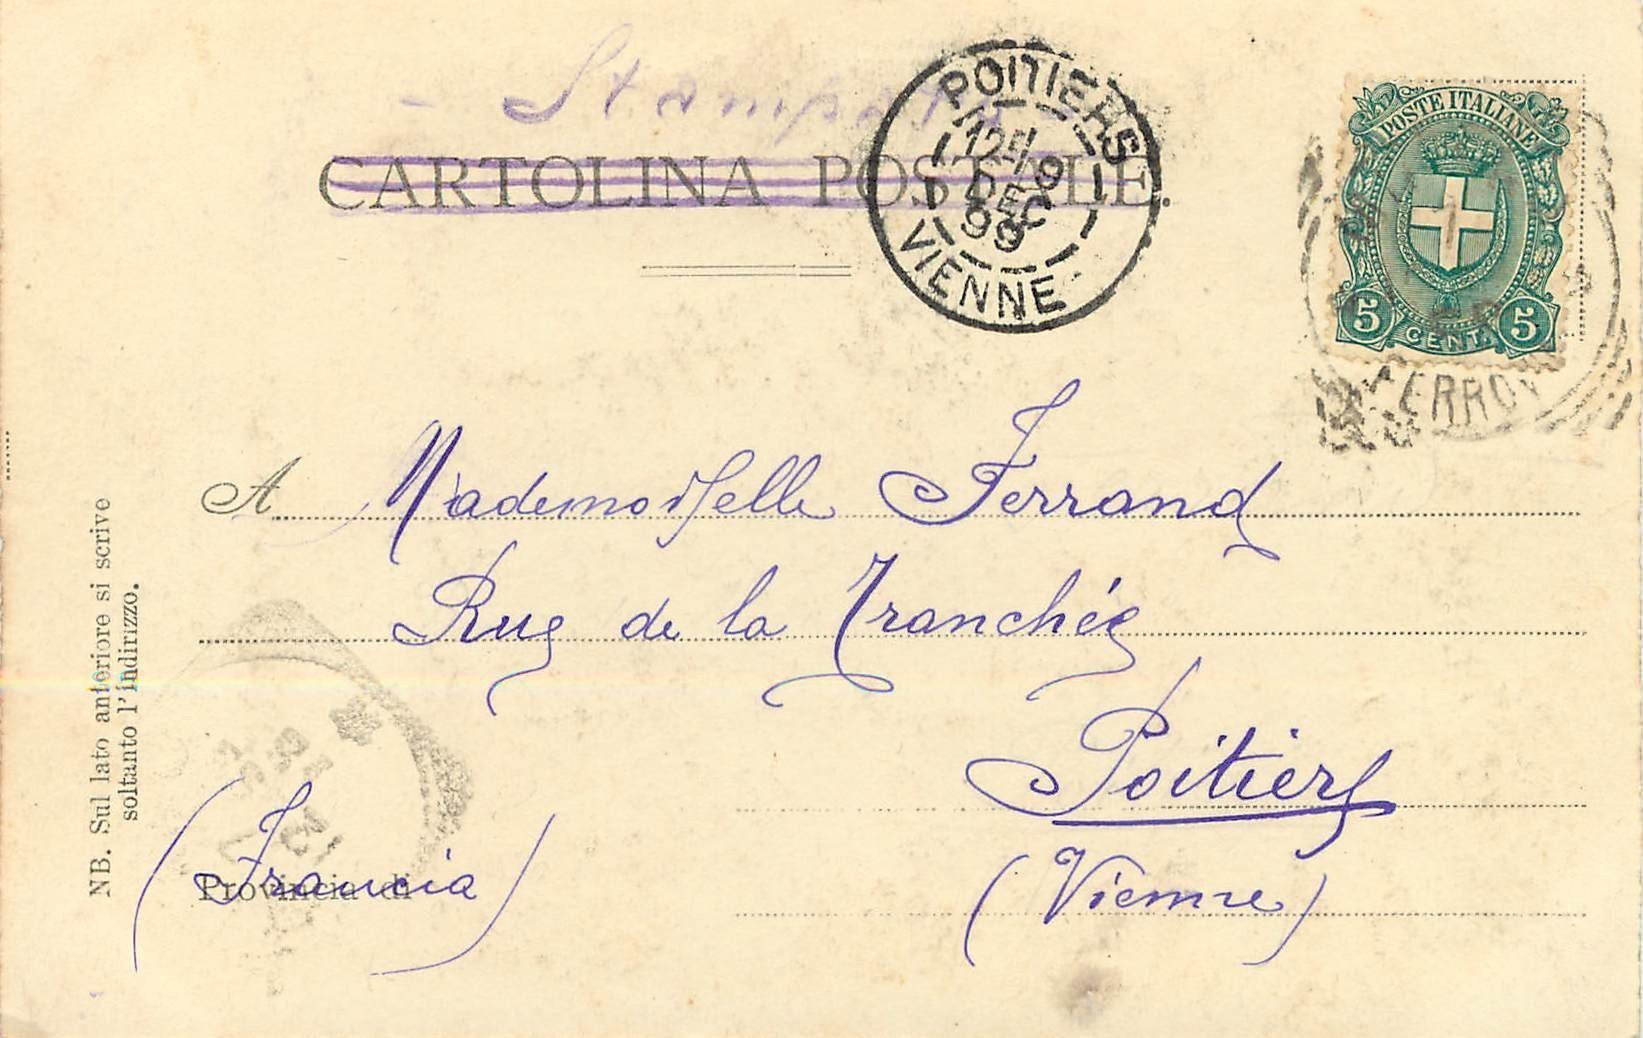 - Stampe -
CARTOLINA POSTALE.
POITIERS
9
DEC
99
VIENNE
POSTE ITALIANE
5 CENT. 5
FERROV
A Mademoiselle Ferrand
Rue de la Tranchée
Poitiers
(Vienne)
Provincia di
(Francia)
NB. Sul lato anteriore si scrive
soltanto l'indirizzo.